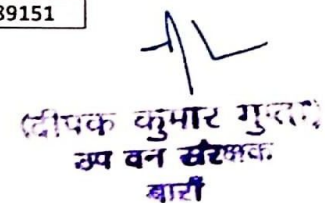 39151
(दीपक कुमार गुप्ता)
उप वन संरक्षक
बारी